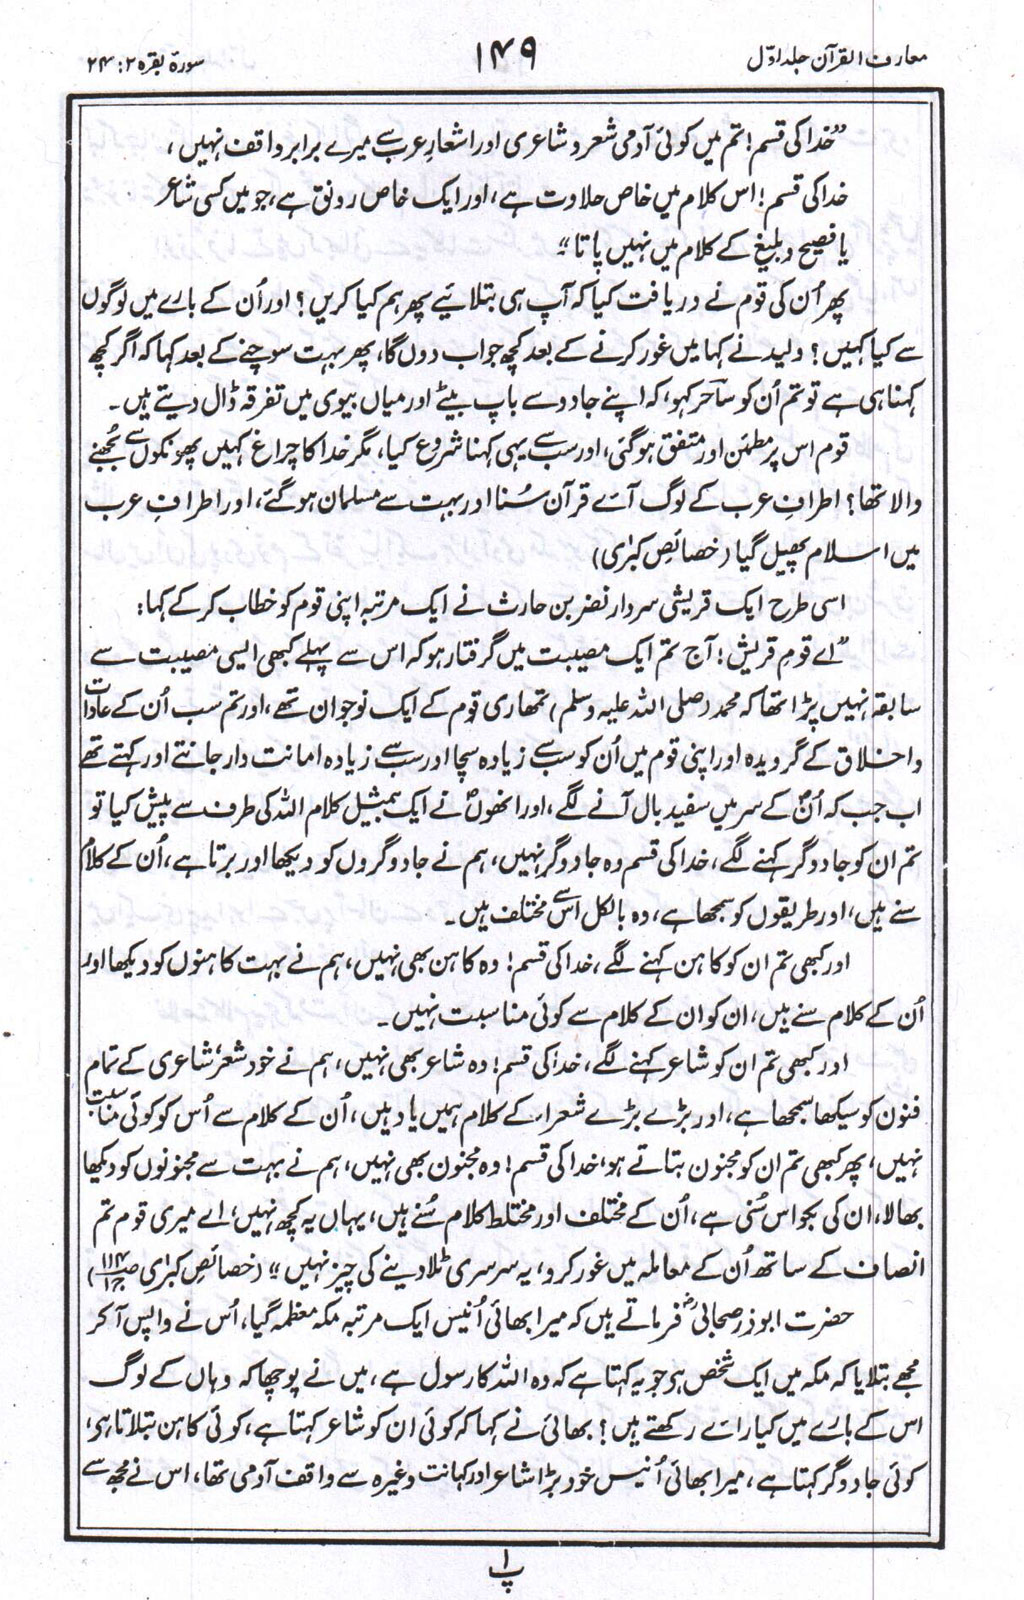 معارف القرآن جلد اوّل
۱۴۹
سورۃ بقرہ ۲ : ۲۴
”خدا کی قسم! تم میں کوئی آدمی شعر و شاعری اور اشعارِ عرب سے میرے برابر واقف نہیں،
خدا کی قسم! اس کلام میں خاص حلاوت ہے، اور ایک خاص رونق ہے، جو میں کسی شاعر
یا فصیح و بلیغ کے کلام میں نہیں پاتا“
پھر اُن کی قوم نے دریافت کیا کہ آپ ہی بتلائیے پھر ہم کیا کریں؟ اور اُن کے بارے میں لوگوں
سے کیا کہیں؟ ولید نے کہا میں غور کرنے کے بعد کچھ جواب دوں گا، پھر بہت سوچنے کے بعد کہا کہ اگر کچھ
کہنا ہی ہے تو تم اُن کو ساحر کہو، کہ اپنے جادو سے باپ بیٹے اور میاں بیوی میں تفرقہ ڈال دیتے ہیں۔
قوم اس پر مطمئن اور متفق ہوگئی، اور سب سے یہی کہنا شروع کیا، مگر خدا کا چراغ کہیں پھونکوں سے بُجھنے
والا تھا؟ اطرافِ عرب کے لوگ آئے قرآن سُنا اور بہت سے مسلمان ہوگئے، اور اطرافِ عرب
میں اسلام پھیل گیا (خصائصِ کبرٰی)
اسی طرح ایک قریشی سردار نضر بن حارث نے ایک مرتبہ اپنی قوم کو خطاب کرکے کہا:
”اے قومِ قریش! آج تم ایک مصیبت میں گرفتار ہو کہ اس سے پہلے کبھی ایسی مصیبت سے
سابقہ نہیں پڑا تھا کہ محمد (صلی اللہ علیہ وسلم) تمھاری قوم کے ایک نوجوان تھے، اور تم سب اُن کے عادات
واخلاق کے گرویدہ اور اپنی قوم میں اُن کو سب سے زیادہ سچا اور سب سے زیادہ امانت دار جانتے اور کہتے تھے
اب جب کہ اُنؐ کے سر میں سفید بال آنے لگے، اور انھوںؐ نے ایک بمیثل کلام اللہ کی طرف سے پیش کیا تو
تم ان کو جادوگر کہنے لگے، خدا کی قسم وہ جادوگر نہیں، ہم نے جادوگروں کو دیکھا اور برتا ہے، اُن کے کلام
سنے ہیں، اور طریقوں کو سمجھا ہے، وہ بالکل اس سے مختلف ہیں۔
اور کبھی تم ان کو کاہن کہنے لگے، خدا کی قسم! وہ کاہن بھی نہیں، ہم نے بہت کاہنوں کو دیکھا اور
اُن کے کلام سنے ہیں، ان کو ان کے کلام سے کوئی مناسبت نہیں۔
اور کبھی تم ان کو شاعر کہنے لگے، خدا کی قسم! وہ شاعر بھی نہیں، ہم نے خود شعر، شاعری کے تمام
فنون کو سیکھا سمجھا ہے، اور بڑے بڑے شعراء کے کلام ہمیں یاد ہیں، اُن کے کلام سے اُس کو کوئی مناسبت
نہیں، پھر کبھی تم ان کو مجنون بتاتے ہو، خدا کی قسم! وہ مجنون بھی نہیں، ہم نے بہت سے مجنونوں کو دیکھا
بھالا، ان کی بکواس سُنی ہے، اُن کے مختلف اور مختلط کلام سُنے ہیں، یہاں یہ کچھ نہیں، اے میری قوم تم
انصاف کے ساتھ اُن کے معاملہ میں غور کرو، یہ سرسری ٹلا دینے کی چیز نہیں“ (خصائصِ کبرٰی ص ۱۱۴ ج ۱)
حضرت ابوذر صحابیؓ فرماتے ہیں کہ میرا بھائی اُنیس ایک مرتبہ مکہ معظمہ گیا، اُس نے واپس آ کر
مجھے بتلایا کہ مکہ میں ایک شخص ہے جو یہ کہتا ہے کہ وہ اللہ کا رسول ہے، میں نے پوچھا کہ وہاں کے لوگ
اس کے بارے میں کیا رائے رکھتے ہیں؟ بھائی نے کہا کہ کوئی ان کو شاعر کہتا ہے، کوئی کاہن بتلاتا ہے،
کوئی جادوگر کہتا ہے، میرا بھائی اُنیس خود بڑا شاعر اور کہانت وغیرہ سے واقف آدمی تھا، اس نے مجھ سے
پ ۱